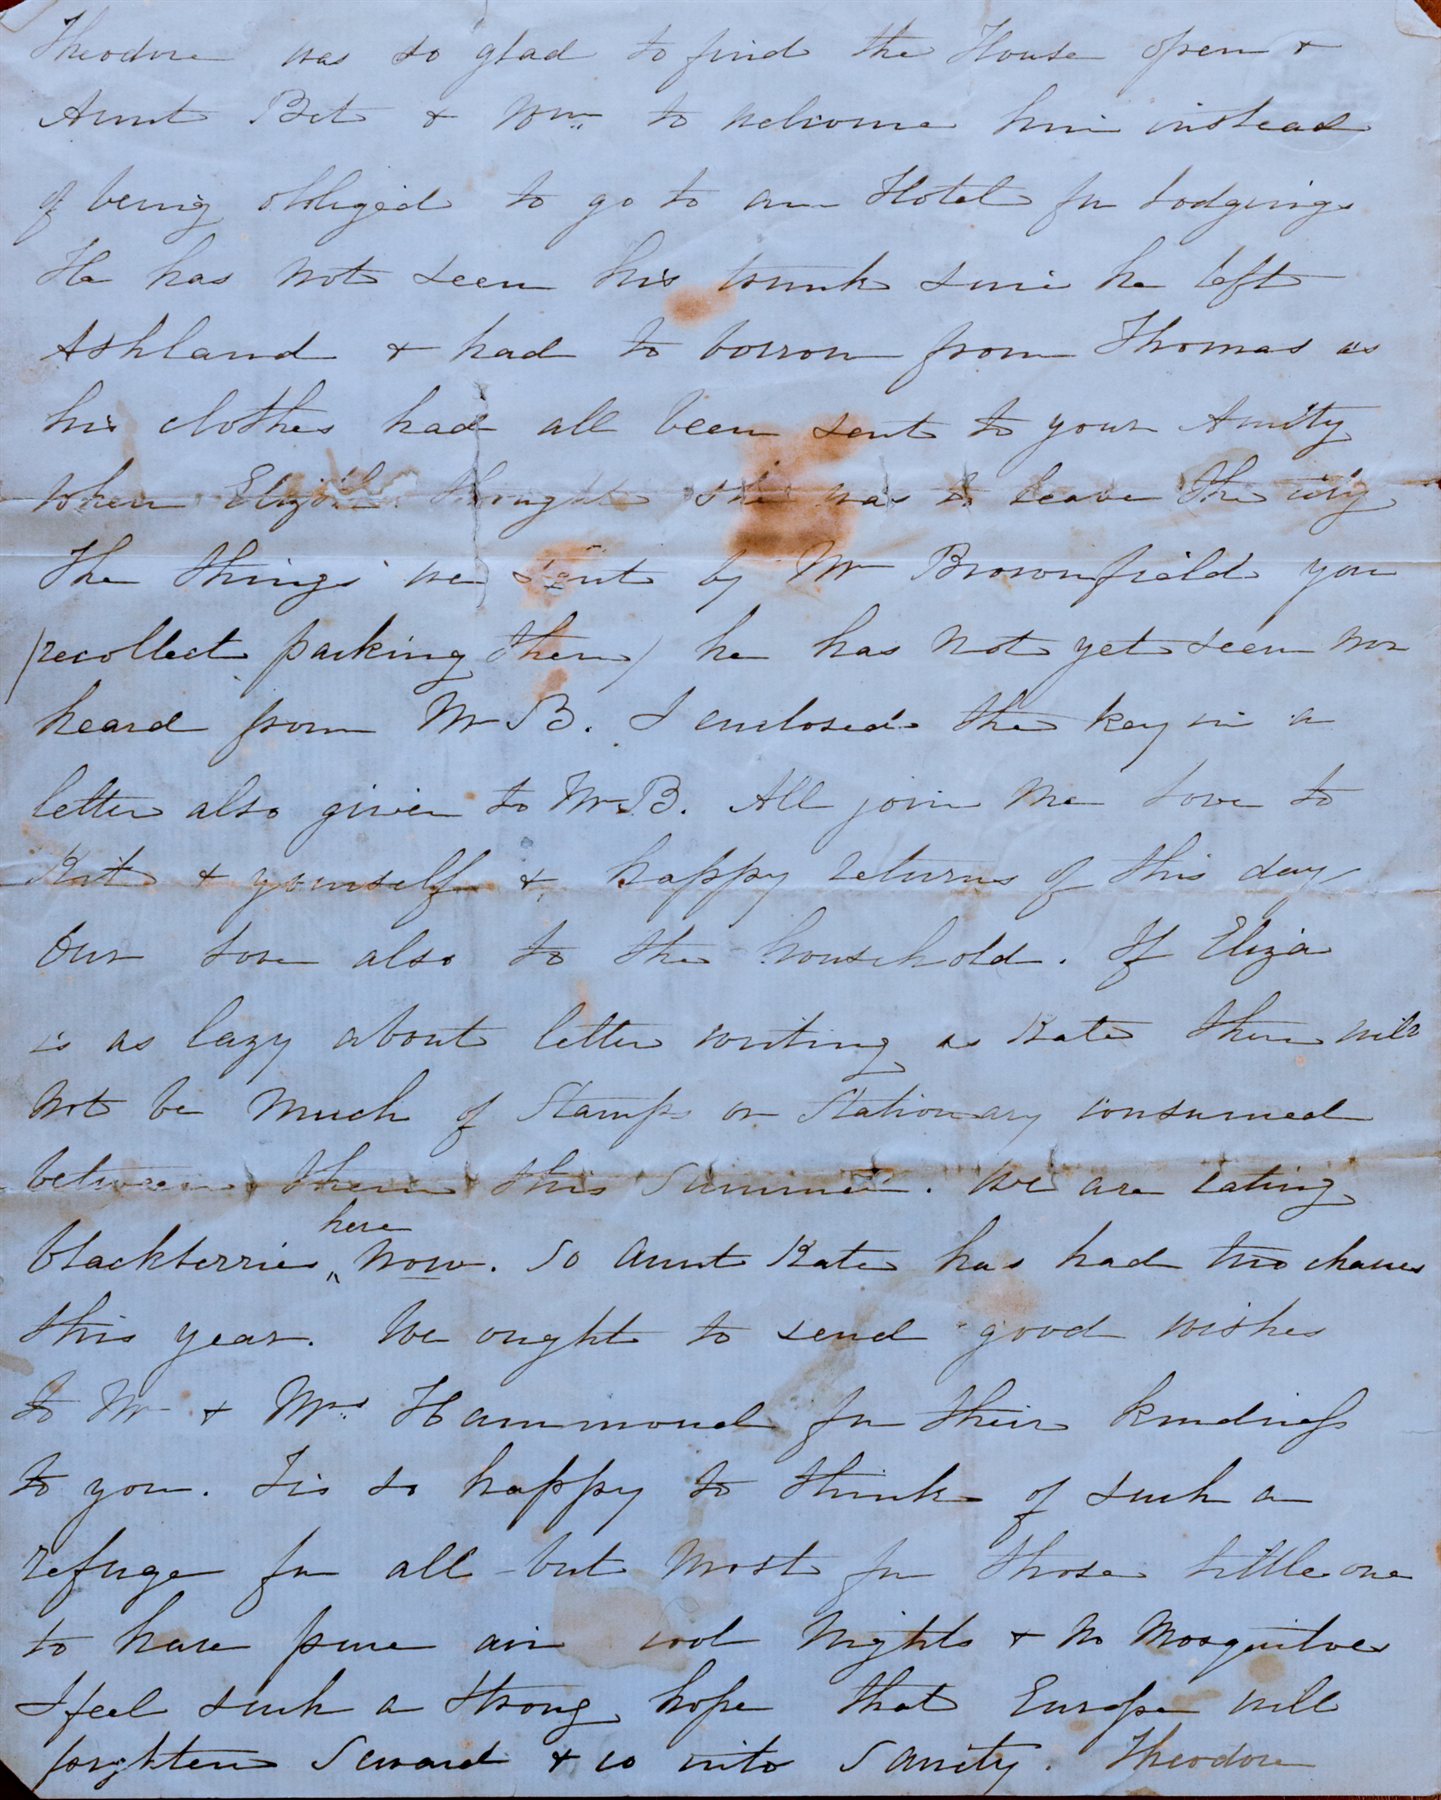 Theodore was so glad to find the House open &
Aunt Bet & Wm. to welcome him instead
of being obliged to go to an Hotel for Lodgings
He has not seen his trunk since he left
Ashland & had to borrow from Thomas as
his clothes had all been sent to your Amity
when Elizth. thought she was to leave the city
The things we sent by Mr Brownfield you
(recollect packing them) he has not yet seen nor
heard from Mr B. I enclosed the key in a
letter also given to Mr B. All join me Love to
Kate & yourself & happy returns of this day
Our Love also to the household. If Eliza
is as lazy about letter writing as Kate there will
not be much of Stamps or Stationary consumed
between them this Summer. We are eating
here
blackberries now. So Aunt Kate has had two chances
this year. We ought to send good wishes
to Mr & Mrs. Hammond for their kindness
to you. Tis so happy to think of such a
refuge for all but most for those little one
to have pure air cool Nights & No Mosquitoes
I feel such a strong hope that Europe will
frighten Seward & co into Sanity. Theodore